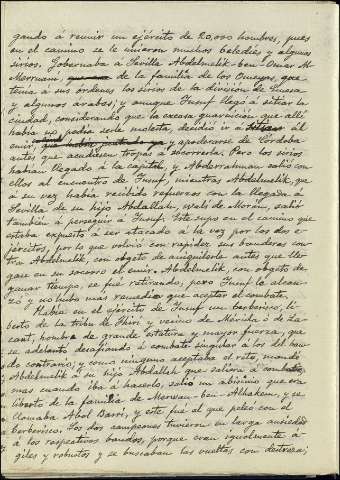 gando á reunir un ejército de 20,000 hombres, pues
en el camino se le unieron muchos beledíes y algunos
sirios. Gobernaba á Sevilla Abdelmelik-ben-Omar Al-
Merruaní, de la familia de los Omeyas, que
tenía á sus órdenes los sirios de la división de Emesa
y algunos árabes; y aunque Yusuf llegó á sitiar la
ciudad, considerando que la escasa guarnición que allí
había no podía serle molesta, decidió ir á el
emir, y apoderarse de Córdoba
antes que acudiesen tropas á socorrerla. Pero los sirios
habían llegado á la capital, y Abderrahman salió con
ellos al encuentro de Yusuf, mientras Abdelmelik, que
á su vez había recibido refuerzos con la llegada á
Sevilla de su hijo Abdallah, walí de Morón, salió
también á perseguir á Yusuf. Este supo en el camino que
estaba expuesto á ser atacado á la vez por los dos e-
jércitos, por lo que volvió con rapidez sus banderas con-
tra Abdelmelik, con objeto de aniquilarlo antes que lle-
gase en su socorro el emir. Abdelmelik, con objeto de
ganar tiempo, se fué retirando; pero Yusuf lo alcan-
zó y no hubo mas remedio que aceptar el combate.
Había en el ejército de Yusuf un berberisco, li-
berto de la tribu de Fihri y vecino de Mérida ó de La-
cant, hombre de grande estatura y mayor fuerza, que
se adelantó desafiando á combate singular á los del ban-
do contrario; y como ninguno aceptaba el reto, mandó
Abdelmelik á su hijo Abdallah que saliera á combatir,
mas cuando iba á hacerlo, salió un abisinio que era
liberto de la familia de Merwan-ben-Alhakem, y se
llamaba Abol Barrí, y este fué el que peleó con el
berberisco. Los dos campeones tuvieron en larga ansiedad
á los respectivos bandos, porque eran igualmente á-
giles y robustos y se buscaban las vueltas con destreza;